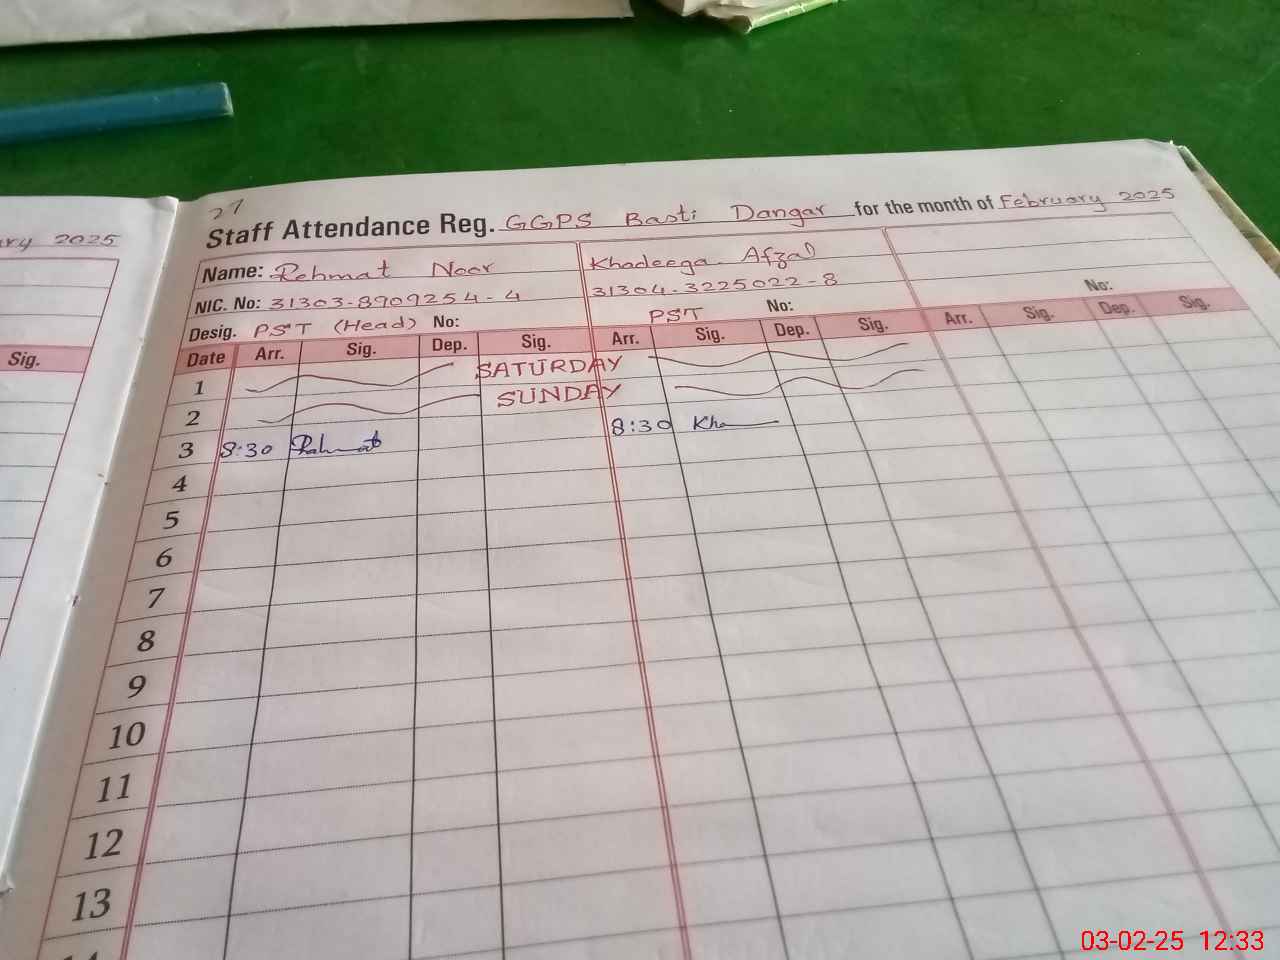 27
ry 2025
Staff Attendance Reg. GGPS Basti Dangar for the month of February 2025
Name: Rehmat Noor Khadeega Afzal
NIC. No: 31303-8909254-4 31304-3225022-8
Desig. PST (Head) No: PST No: No:
Sig.
Date Arr. Sig. Dep. Sig. Arr. Sig. Dep. Sig. Arr. Sig. Dep. Sig.
1 SATURDAY
2 SUNDAY
3 8:30 Rahmat 8:30 Kha
4
5
6
7
8
9
10
11
12
13
03-02-25 12:33